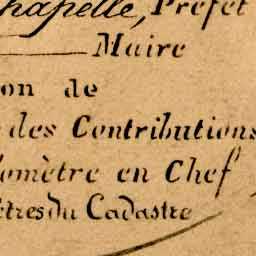 hapelle, Préfet
Maire
on de
des Contributions
omètre en Chef
tres du Cadastre